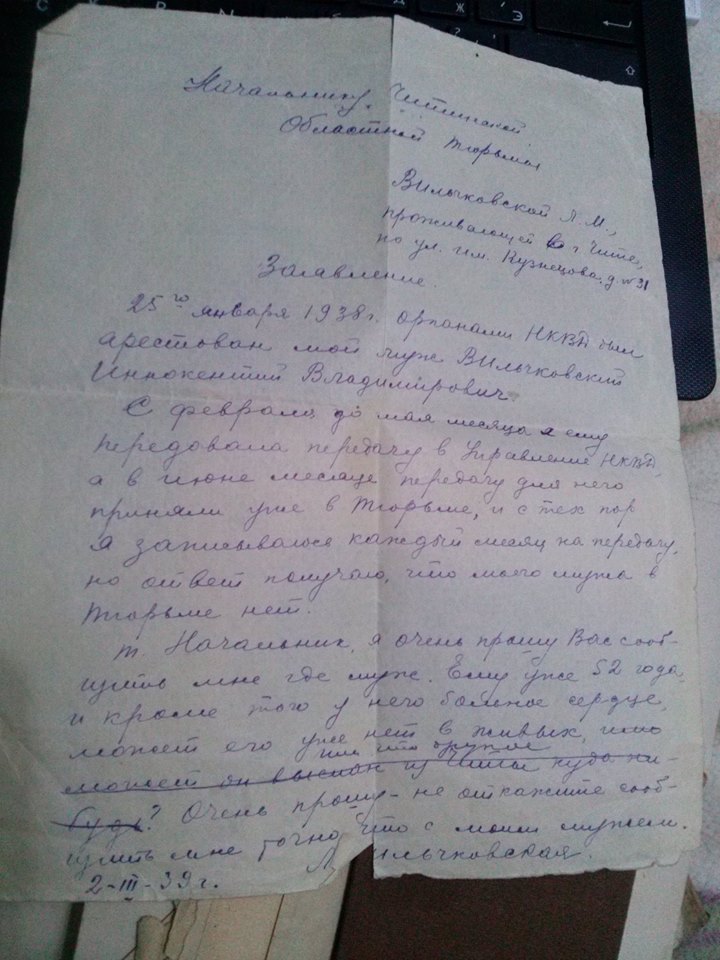 Начальнику Читинской
Областной тюрьмы
Вильчковской Л.М.,
проживающей в г Чите,
по ул. им. Кузнецова, д. № 31
Заявление.
25го января 1938 г. органами НКВД был
арестован мой муж Вильчковский
Иннокентий Владимирович.
С февраля до мая месяца я ему
передовала передачу в Управление НКВД,
а в июне месяце передачу для него
приняли уже в тюрьме, и с тех пор
я записываюсь каждый месяц на передачу,
но ответ получаю, что моего мужа в
тюрьме нет.
т. Начальник, я очень прошу Вас сооб-
щить мне где муж. Ему уже 52 года,
и кроме того у него больное сердце,
может его уже нет в живых, или
или что другое
может он выслан из Читы куда ни-
будь? Очень прошу - не откажите сооб-
щить мне точно что с моим мужем.
Вильчковская.
2-III-39 г.